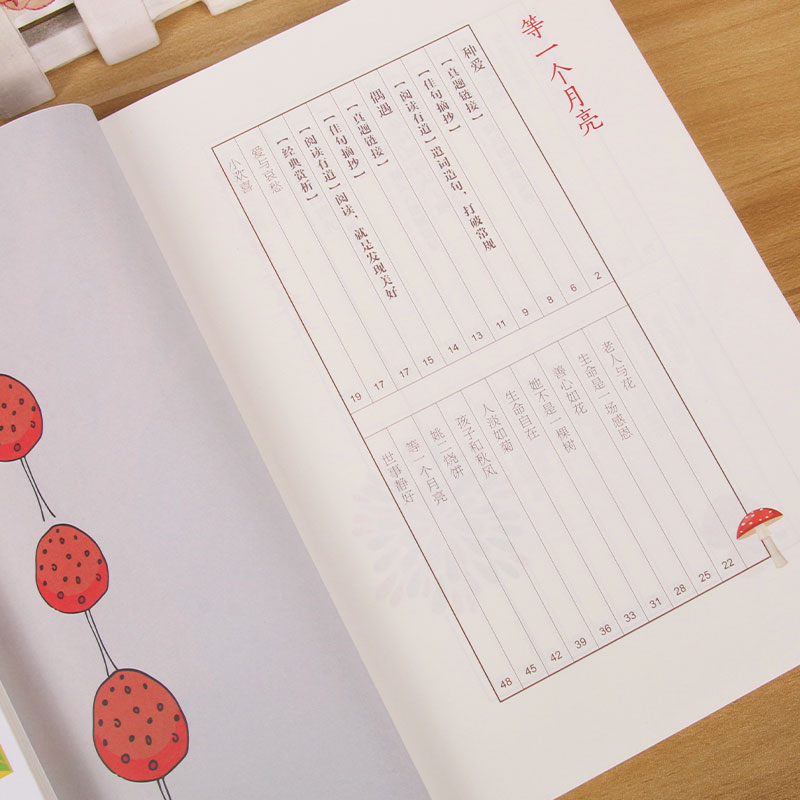 等一个月亮
种爱 2
【真题链接】 6
【佳句摘抄】 8
【阅读有道】遣词造句，打破常规 9
偶遇 11
【真题链接】 13
【佳句摘抄】 14
【阅读有道】阅读，就是发现美好 15
【经典赏析】 17
爱与哀愁 17
小欢喜 19
老人与花 22
生命是一场感恩 25
善心如花 28
她不是一棵树 31
生命自在 33
人淡如菊 36
孩子和秋风 39
姚二烧饼 42
等一个月亮 45
世事静好 48